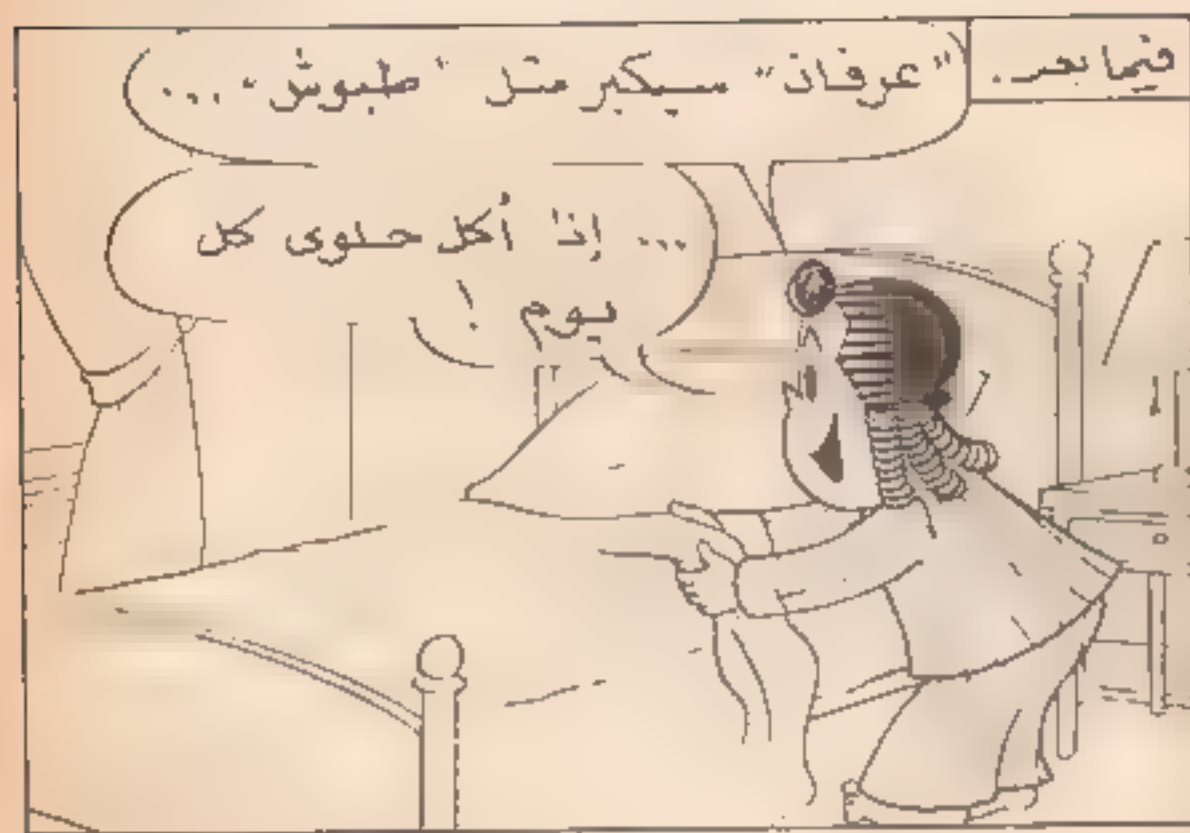 فيما بعد..
"عرفان" سيكبر مثل "طبوش"...
... إذا أكل حلوى كل
يوم !